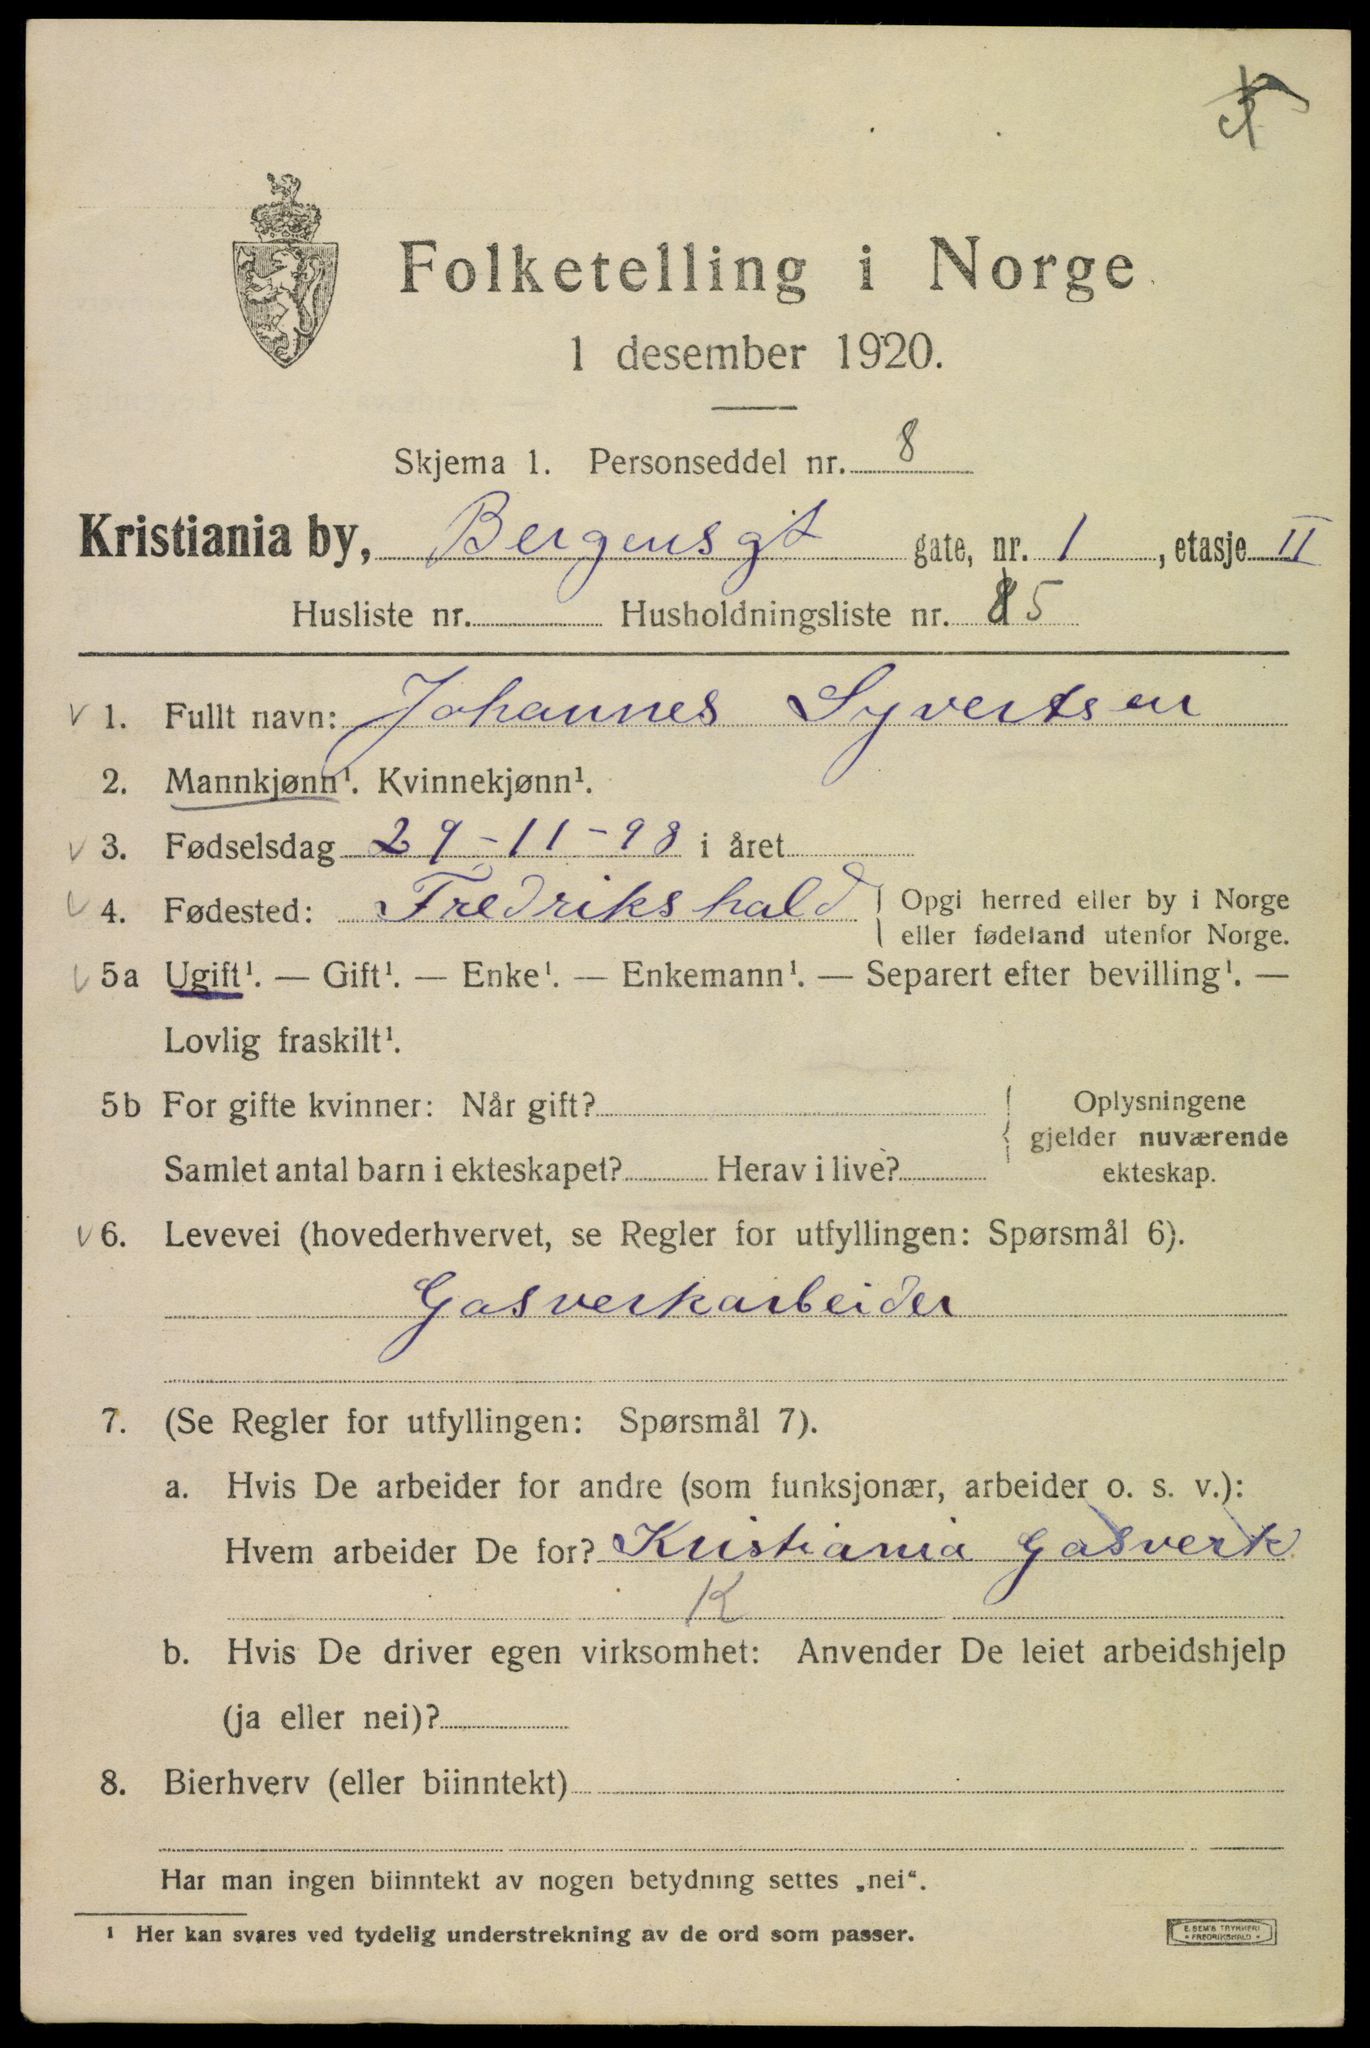 Folketelling i Norge
1 desember 1920.
Skjema 1. Personseddel nr. 8
Kristiania by, Bergensgt gate, nr. 1, etasje II
Husliste nr. Husholdningsliste nr. 5
1. Fullt navn: Johannes Syvertsen
2. Mannkjønn¹. Kvinnekjønn¹.
3. Fødselsdag 29-11-98 i året
4. Fødested: Fredrikshald Opgi herred eller by i Norge
eller fødeland utenfor Norge.
5a Ugift¹. — Gift¹. — Enke¹. — Enkemann¹. — Separert efter bevilling¹. —
Lovlig fraskilt¹.
5b For gifte kvinner: Når gift? Oplysningene
gjelder nuværende
Samlet antal barn i ekteskapet? Herav i live? ekteskap.
6. Levevei (hovederhvervet, se Regler for utfyllingen: Spørsmål 6).
Gasverkarbeider
7. (Se Regler for utfyllingen: Spørsmål 7).
a. Hvis De arbeider for andre (som funksjonær, arbeider o. s. v.):
Hvem arbeider De for? Kristiania Gasverk
K
b. Hvis De driver egen virksomhet: Anvender De leiet arbeidshjelp
(ja eller nei)?
8. Bierhverv (eller biinntekt)
Har man ingen biinntekt av nogen betydning settes „nei“.
¹ Her kan svares ved tydelig understrekning av de ord som passer.
E. SEM'S TRYKKERI
FREDRIKSHALD